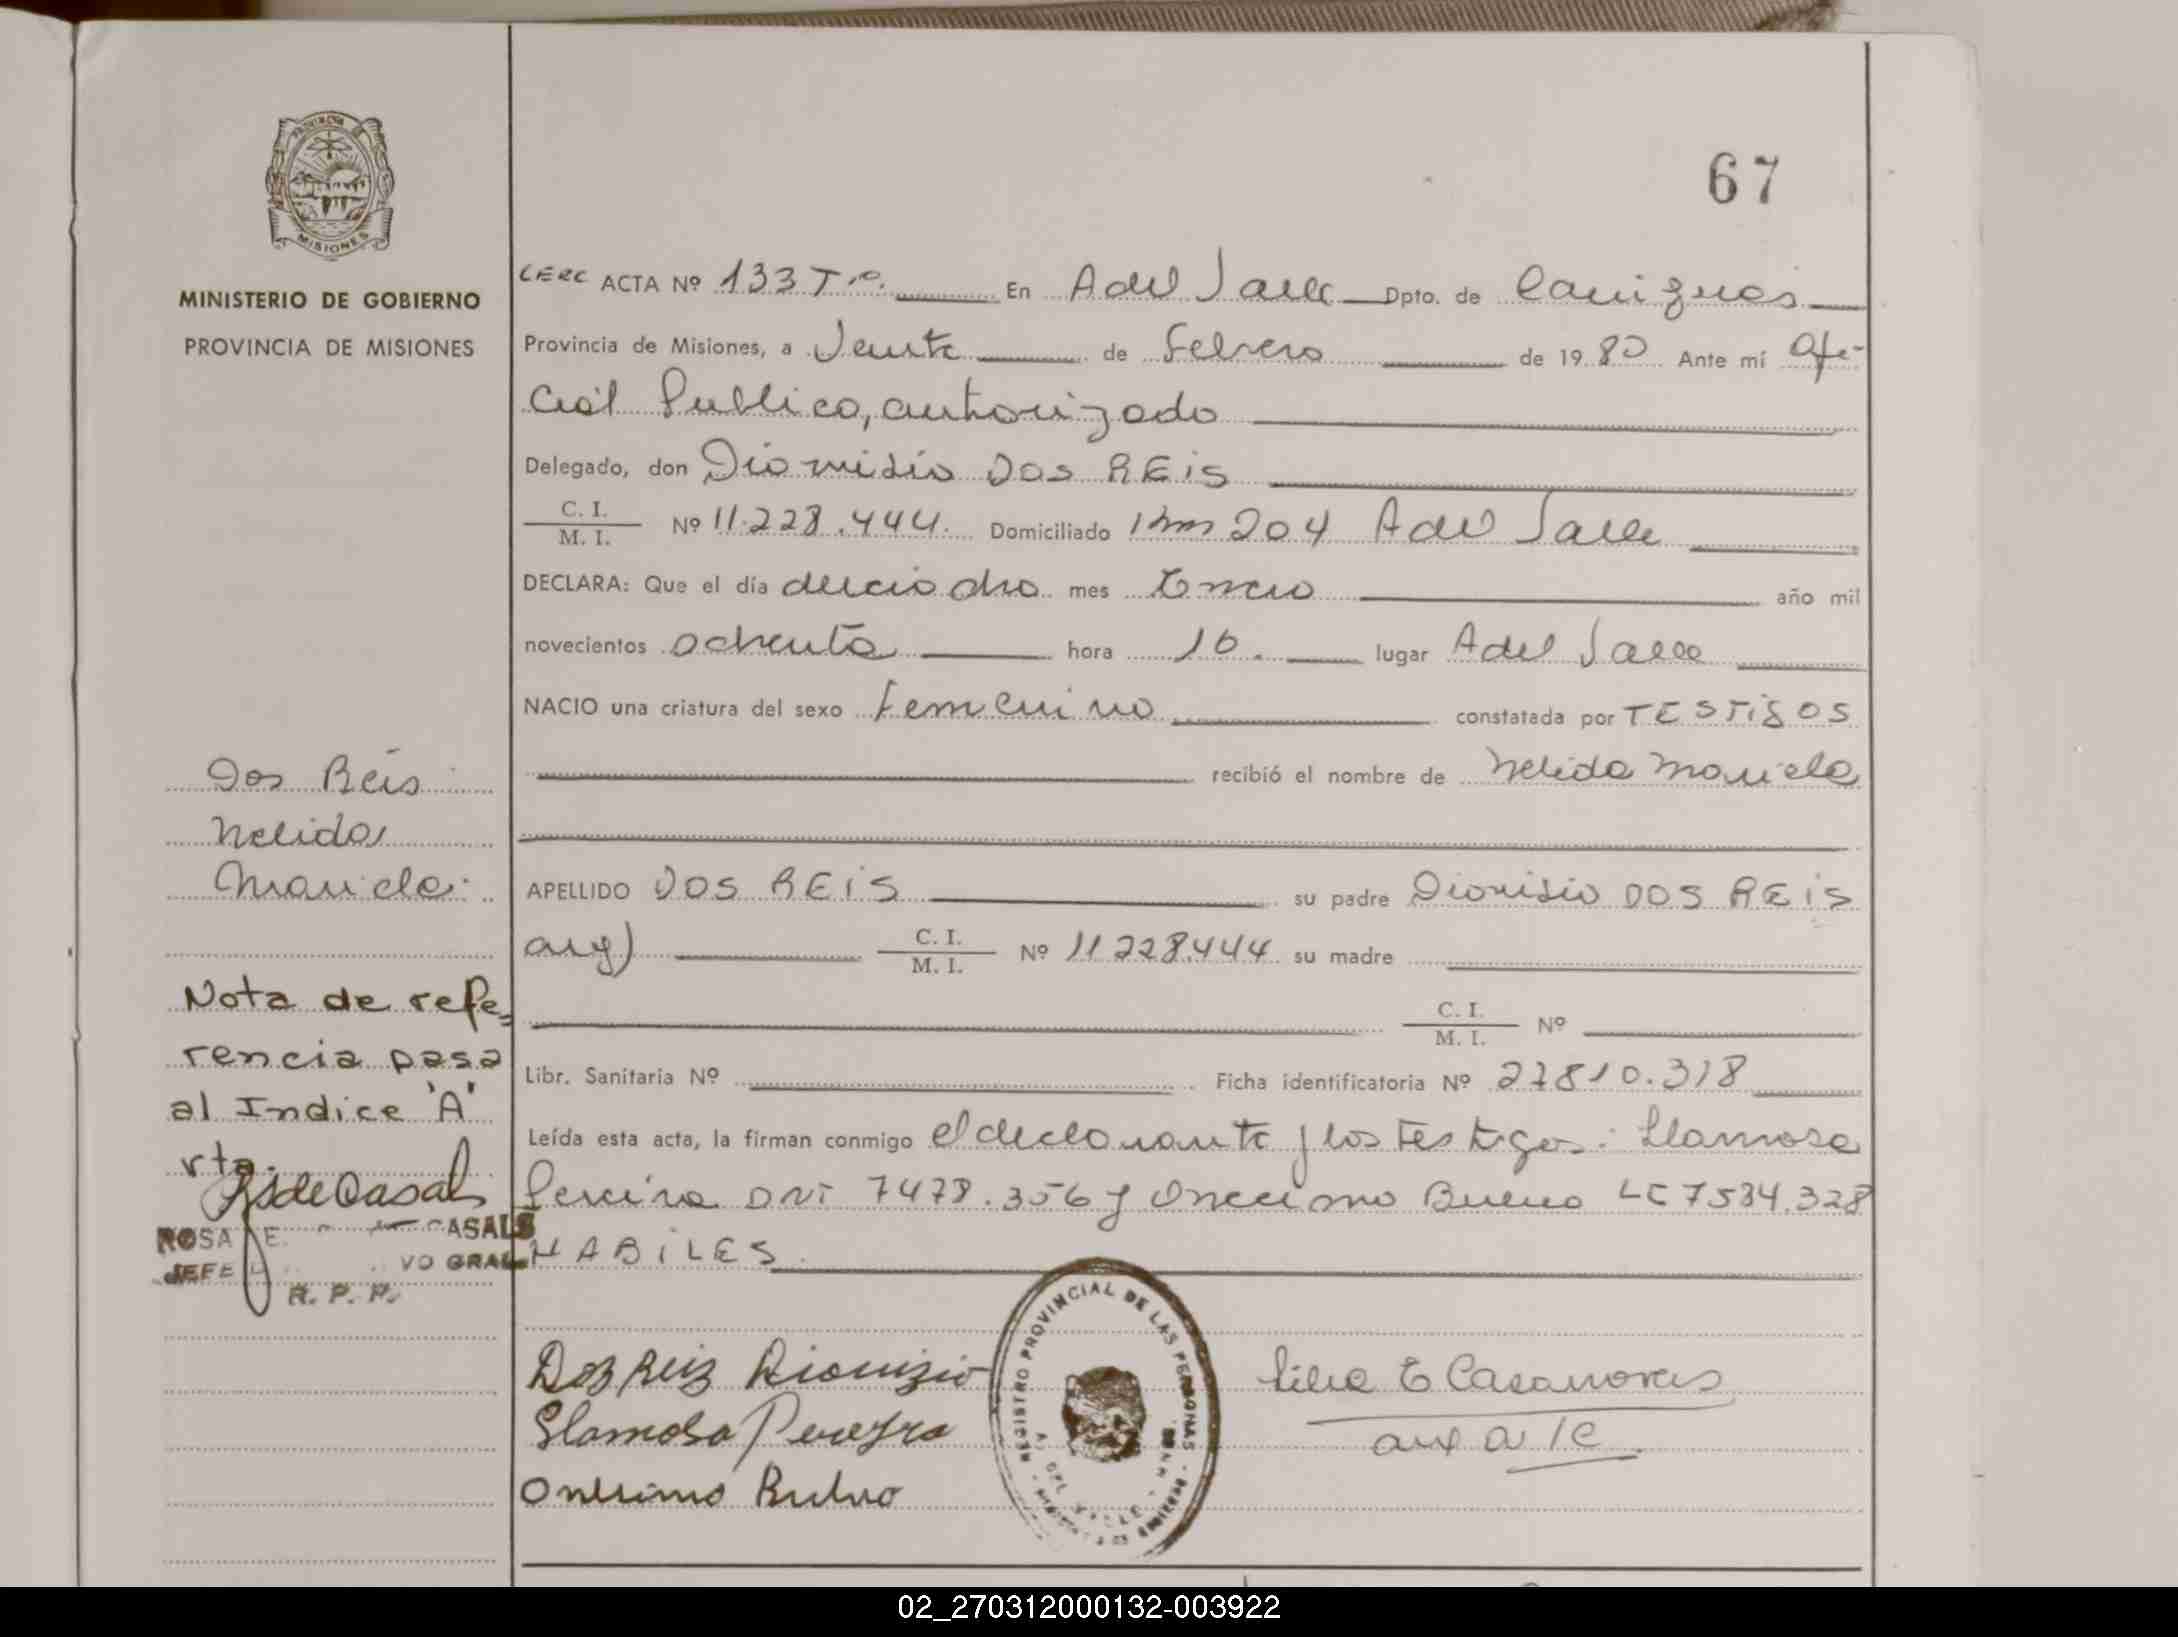 67
PROVINCIA DE
MISIONES
MINISTERIO DE GOBIERNO
PROVINCIA DE MISIONES
ACTA Nº 133 Tº. En A del Valle Dpto. de Cainguas
Provincia de Misiones, a Veinte de Febrero de 1980 Ante mí Ofi-
cial Publico, autorizado
Delegado, don Dionisio DOS REIS
C. I. / M. I. Nº 11.228.444. Domiciliado Km 204 A del Valle
DECLARA: Que el día dieciocho mes Enero año mil
novecientos ochenta hora 16. lugar A del Valle
NACIO una criatura del sexo Femenino constatada por TESTIGOS
recibió el nombre de Nelida Mariela
APELLIDO DOS REIS su padre Dionisio DOS REIS
arg) C. I. / M. I. Nº 11228.444 su madre
C. I. / M. I. Nº
Libr. Sanitaria Nº Ficha identificatoria Nº 27810.318
Leída esta acta, la firman conmigo el declarante y los Testigos: Llamosa
Pereira DNI 7478.356 y Onecimo Bueno LE 7584.328
HABILES
Dos Reis
Nelida
Mariela
Nota de refe=
rencia pasa
al Indice 'A'
rta.
RsdeCasals
ROSA E. CASALS
JEFE VO GRAL
R. P. P.
Dos Reis Dionizio
Llamosa Pereyra
Onesimo Buено
REGISTRO PROVINCIAL DE LAS PERSONAS
A. DEL VALLE
Lilia E Casanovas
aux a/c
02_270312000132-003922